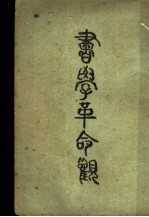 書學革命觀